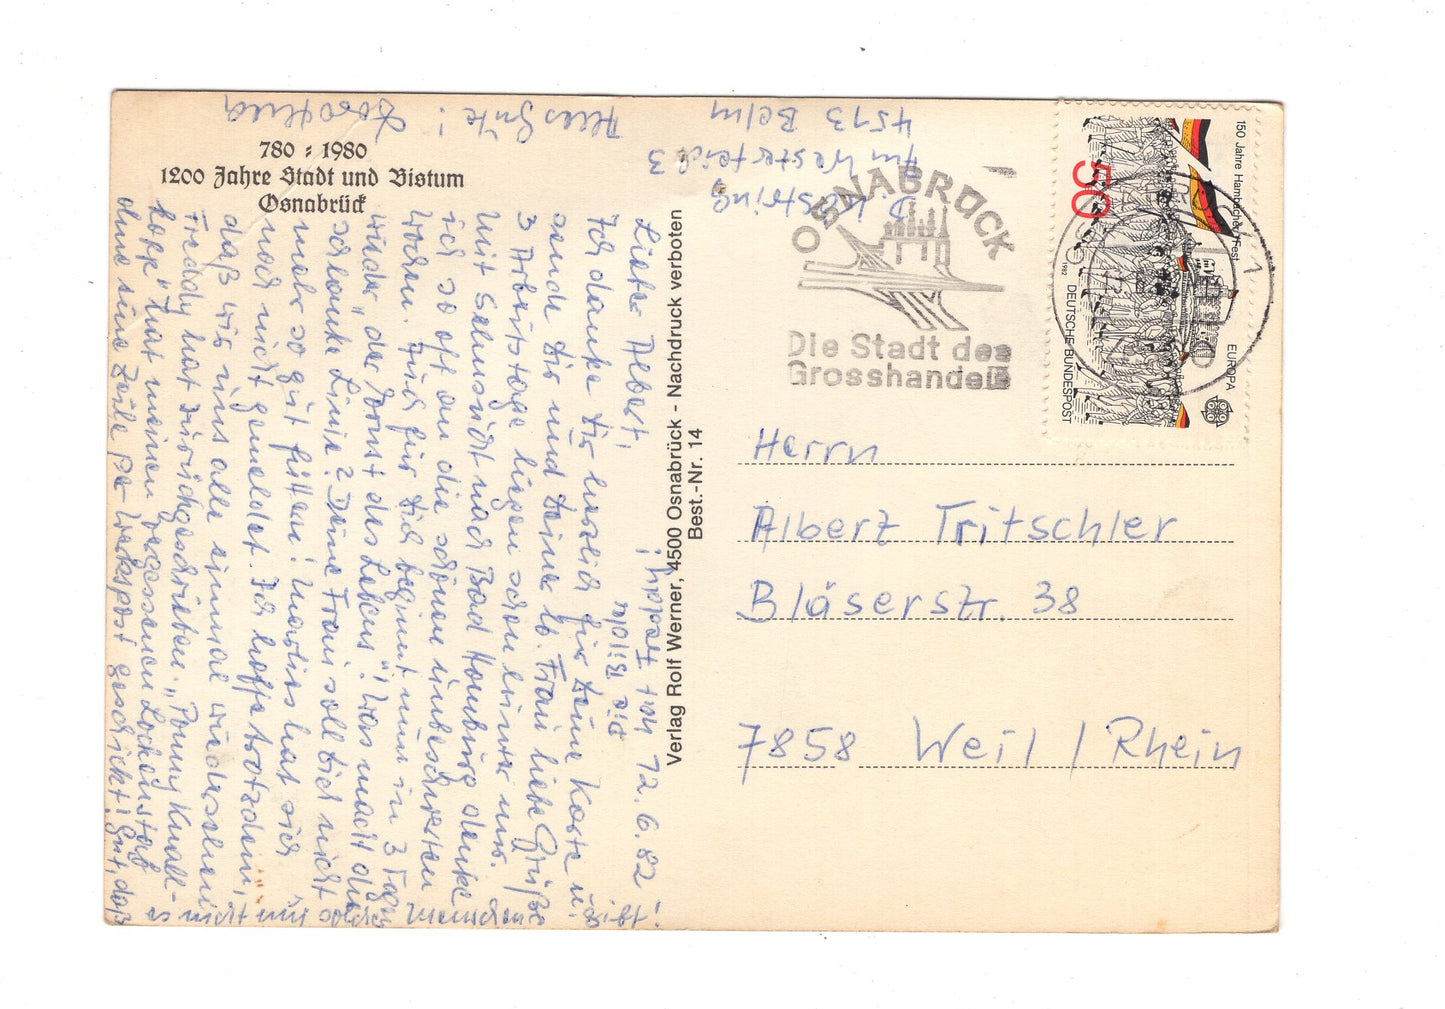 780 : 1980
1200 Jahre Stadt und Bistum
Osnabrück
12.6.82
Lieber Albert!
Ich danke Dir herzlich für Deine Karte u.
sende Dir und Deiner lb. Frau liebe Grüße
3 Arbeitstage liegen schon hinter uns.
Mit Sehnsucht nach Bad Homburg denke
ich so oft an die schönen unbeschwerten
Wochen. Auch für Dich beginnt nun in 3 Tagen
wieder "der Ernst des Lebens". Was macht die
schlanke Linie? Deine Frau soll Dich nicht
mehr so gut füttern! Marlies hat sich
noch nicht gemeldet. Ich hoffe trotzdem,
daß wir uns alle einmal wiedersehen
Freddy hat zurückgeschrieben. "Ponny Knall-
kopp" hat meinen vergessenen Lockenstab
ohne eine Zeile per Werkspost geschickt! Gut, daß
es nicht nur solche Menschen gibt!
Alles Gute!
Die Bilder mit Freddy!
D. Kästring
Am Westerfeld 3
4513 Belm
Verlag Rolf Werner, 4500 Osnabrück - Nachdruck verboten
Best.-Nr. 14
OSNABRÜCK
Die Stadt des
Grosshandels
150 Jahre Hambacher Fest
50
1982
EUROPA
DEUTSCHE BUNDESPOST
Herrn
Albert Tritschler
Bläserstr. 38
7858 Weil / Rhein